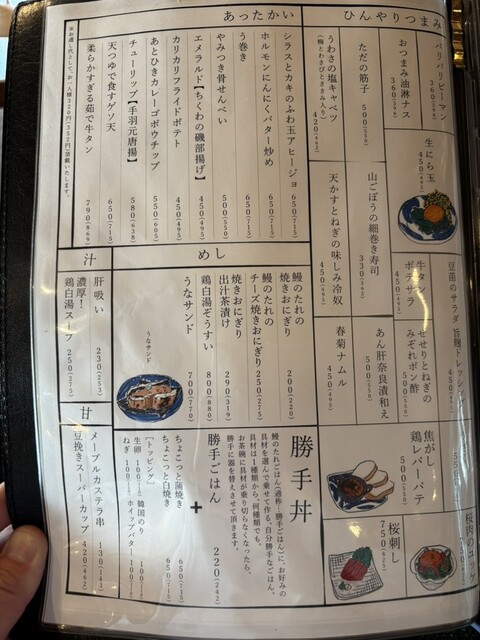 ひんやりつまみ
パリパリピーマン
360
おつまみ油淋ナス
360
ただの筋子
500(550)
うわさの塩キャベツ
(梅とわさびとささみ入り)
420(462)
生にら玉
450(495)
山ごぼうの細巻き寿司
330(363)
天かすとねぎの味しみ冷奴
450(495)
牛タン
ポテサラ
450(495)
せせりとねぎの
みぞれポン酢
500(550)
あん肝奈良漬和え
500(550)
春菊ナムル
450(495)
焦がし
鶏レバーパテ
500(550)
桜刺し
750(825)
桜肉のユッケ
あったかい
シラスとカキのふわ玉アヒージョ
650(715)
ホルモンにんにくバター炒め
650(715)
う巻き
650(715)
やみつき骨せんべい
500(550)
エメラルド【ちくわの磯部揚げ】
450(495)
カリカリフライドポテト
450(495)
あとひきカレーゴボウチップ
550(605)
チューリップ【手羽元唐揚】
580(638)
天つゆで食すゲソ天
650(715)
柔らかすぎる茹で牛タン
790(869)
めし
鰻のたれの
焼きおにぎり
200(220)
鰻のたれの
チーズ焼きおにぎり
250(275)
焼きおにぎり
出汁茶漬け
290(319)
鶏白湯ぞうすい
800(880)
うなサンド
700(770)
うなサンド
汁
肝吸い
230(253)
濃厚!
鶏白湯スープ
250(275)
勝手丼
鰻のたれごはん(通称、勝手ごはん)に、お好みの
具材を選んで乗せて作る、自分勝手なごはん。
具材は1種類から、何種類でも。
お茶碗に具材が乗り切らなくなったら、
勝手に器を替えさせて頂きます。
勝手ごはん
220(242)
+
ちょこっと蒲焼き
650(715)
ちょこっと白焼き
650(715)
[トッピング]
生卵 100(110) 韓国のり 100(110)
ねぎ 100(110) ホイップバター 100(110)
甘
メープルカステラ串
130(143)
豆挽きスーパーカップ
420(462)